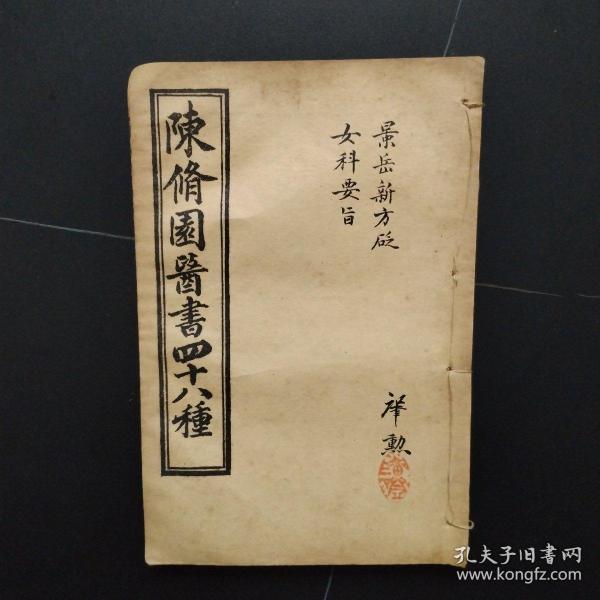 陳脩園醫書四十八種
景岳新方砭
女科要旨
肇勲
孔夫子旧書网
www.kongfz.com